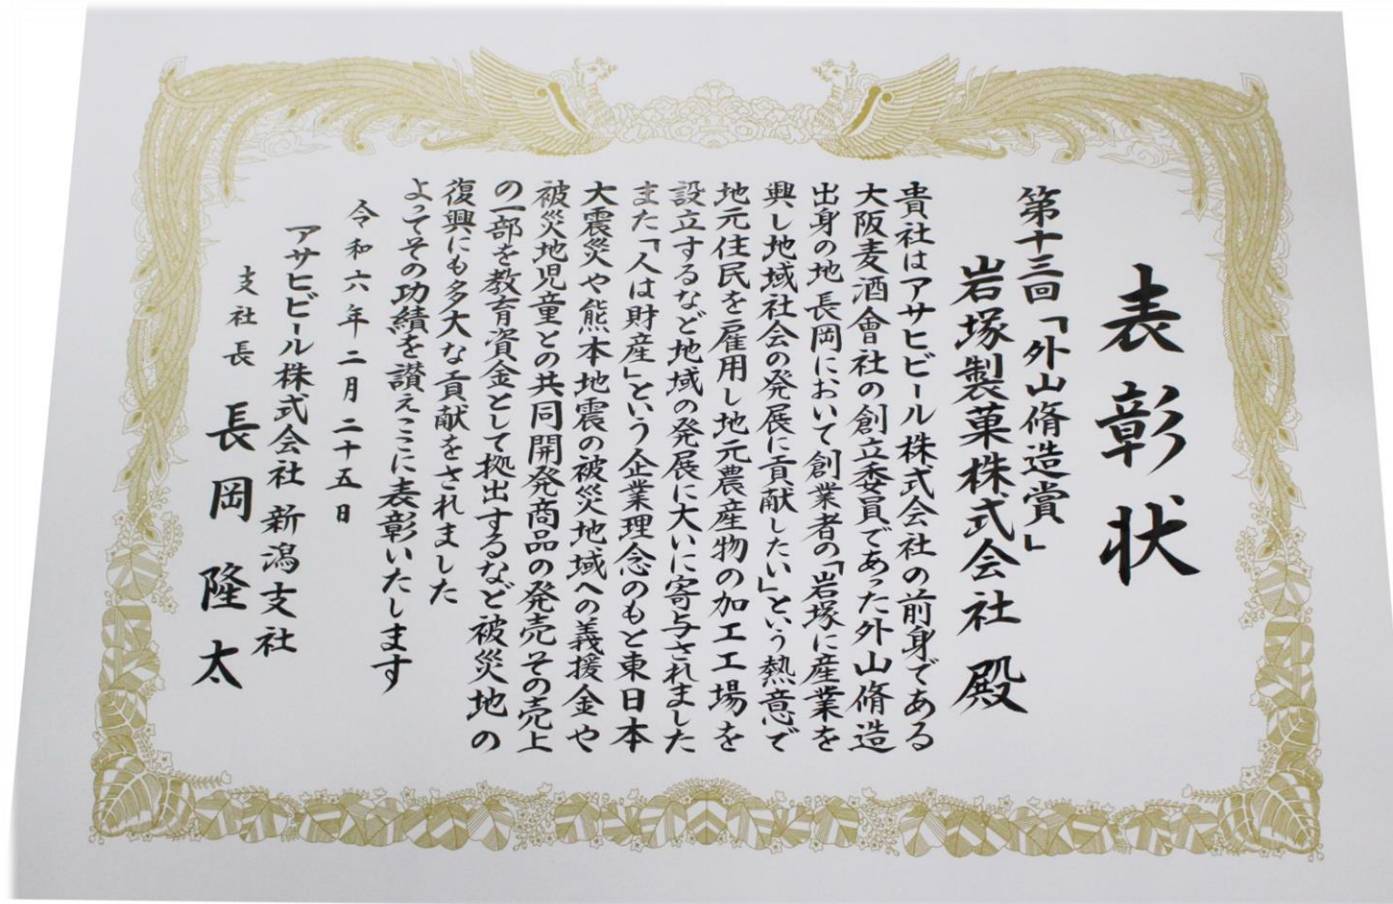 表彰状
第十三回「外山脩造賞」
岩塚製菓株式会社 殿
貴社はアサヒビール株式会社の前身である
大阪麦酒會社の創立委員であった外山脩造
出身の地長岡において創業者の「岩塚に産業を
興し地域社会の発展に貢献したい」という熱意で
地元住民を雇用し地元農産物の加工工場を
設立するなど地域の発展に大いに寄与されました
また「人は財産」という企業理念のもと東日本
大震災や熊本地震の被災地域への義援金や
被災地児童との共同開発商品の発売その売上
の一部を教育資金として拠出するなど被災地の
復興にも多大な貢献をされました
よってその功績を讃えここに表彰いたします
令和六年二月二十五日
アサヒビール株式会社 新潟支社
支社長 長岡隆太